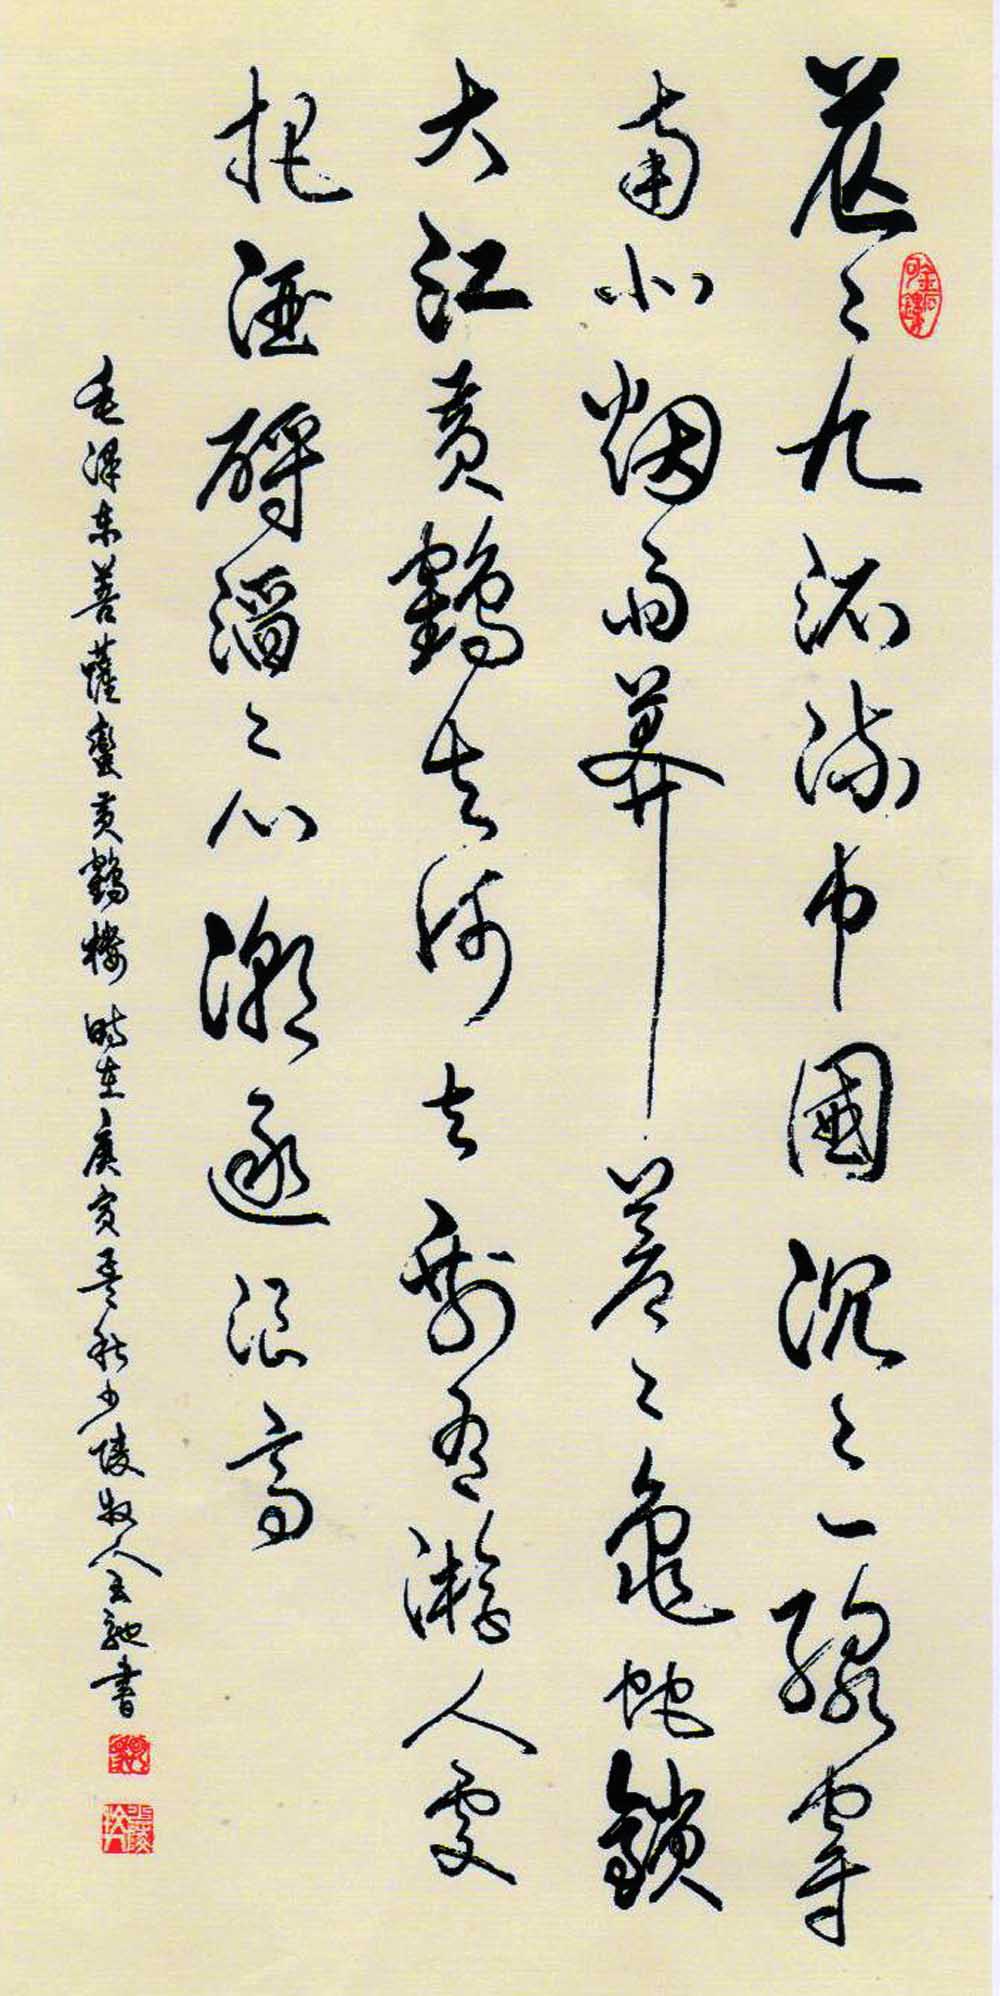 茫々九派流中國沉々一線穿
南北烟雨莽蒼々龜蛇鎖
大江黄鶴去何去剩有遊人處
把酒酹滔々心潮逐浪高
毛澤東菩薩蠻黄鶴樓 時在庚寅孟秋少陵牧人金馳書